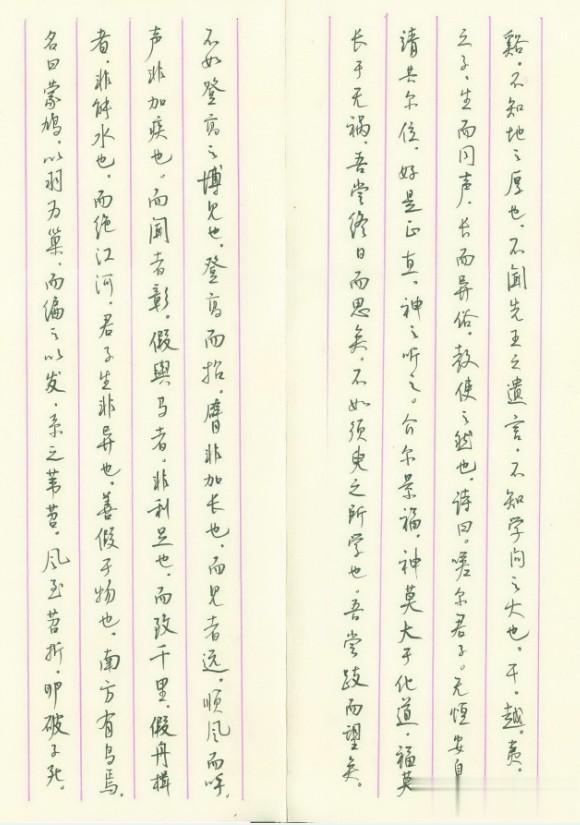 谿。不知地之厚也。不闻先王之遗言。不知学问之大也。干。越。夷。
之子。生而同声。长而异俗。教使之然也。诗曰。嗟尔君子。无恒安息
靖共尔位。好是正直。神之听之。介尔景福。神莫大于化道。福莫
长于无祸。吾尝终日而思矣。不如须臾之所学也。吾尝跂而望矣。
不如登高之博见也。登高而招。臂非加长也。而见者远。顺风而呼。
声非加疾也。而闻者彰。假舆马者。非利足也。而致千里。假舟楫
者。非能水也。而绝江河。君子生非异也。善假于物也。南方有鸟焉。
名曰蒙鸠。以羽为巢。而编之以发。系之苇苕。风至苕折。卵破子死。